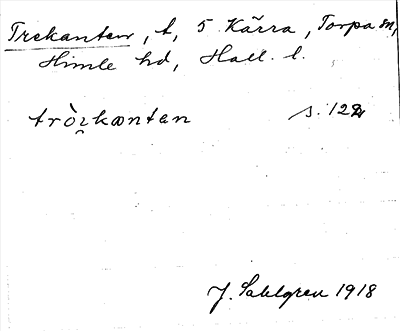 Trekanten, t, 5 Kärra, Torpa sn,
Himle hd, Hall. l.
tròi̯kanten s. 122
J. Sahlgren 1918